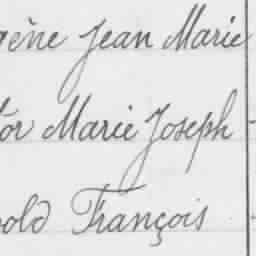 gène Jean Marie
tor Marie Joseph
pold François